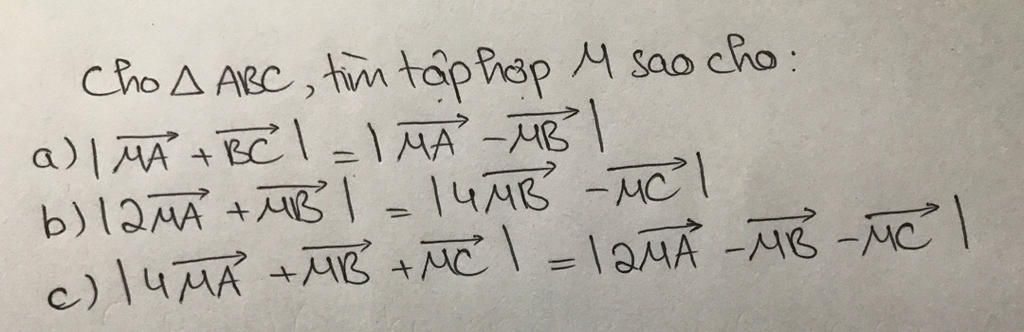 Cho △ ABC, tìm tập hợp M sao cho:
a) |\overrightarrow{MA} + \overrightarrow{BC}| = |\overrightarrow{MA} - \overrightarrow{MB}|
b) |2\overrightarrow{MA} + \overrightarrow{MB}| = |4\overrightarrow{MB} - \overrightarrow{MC}|
c) |4\overrightarrow{MA} + \overrightarrow{MB} + \overrightarrow{MC}| = |2\overrightarrow{MA} - \overrightarrow{MB} - \overrightarrow{MC}|